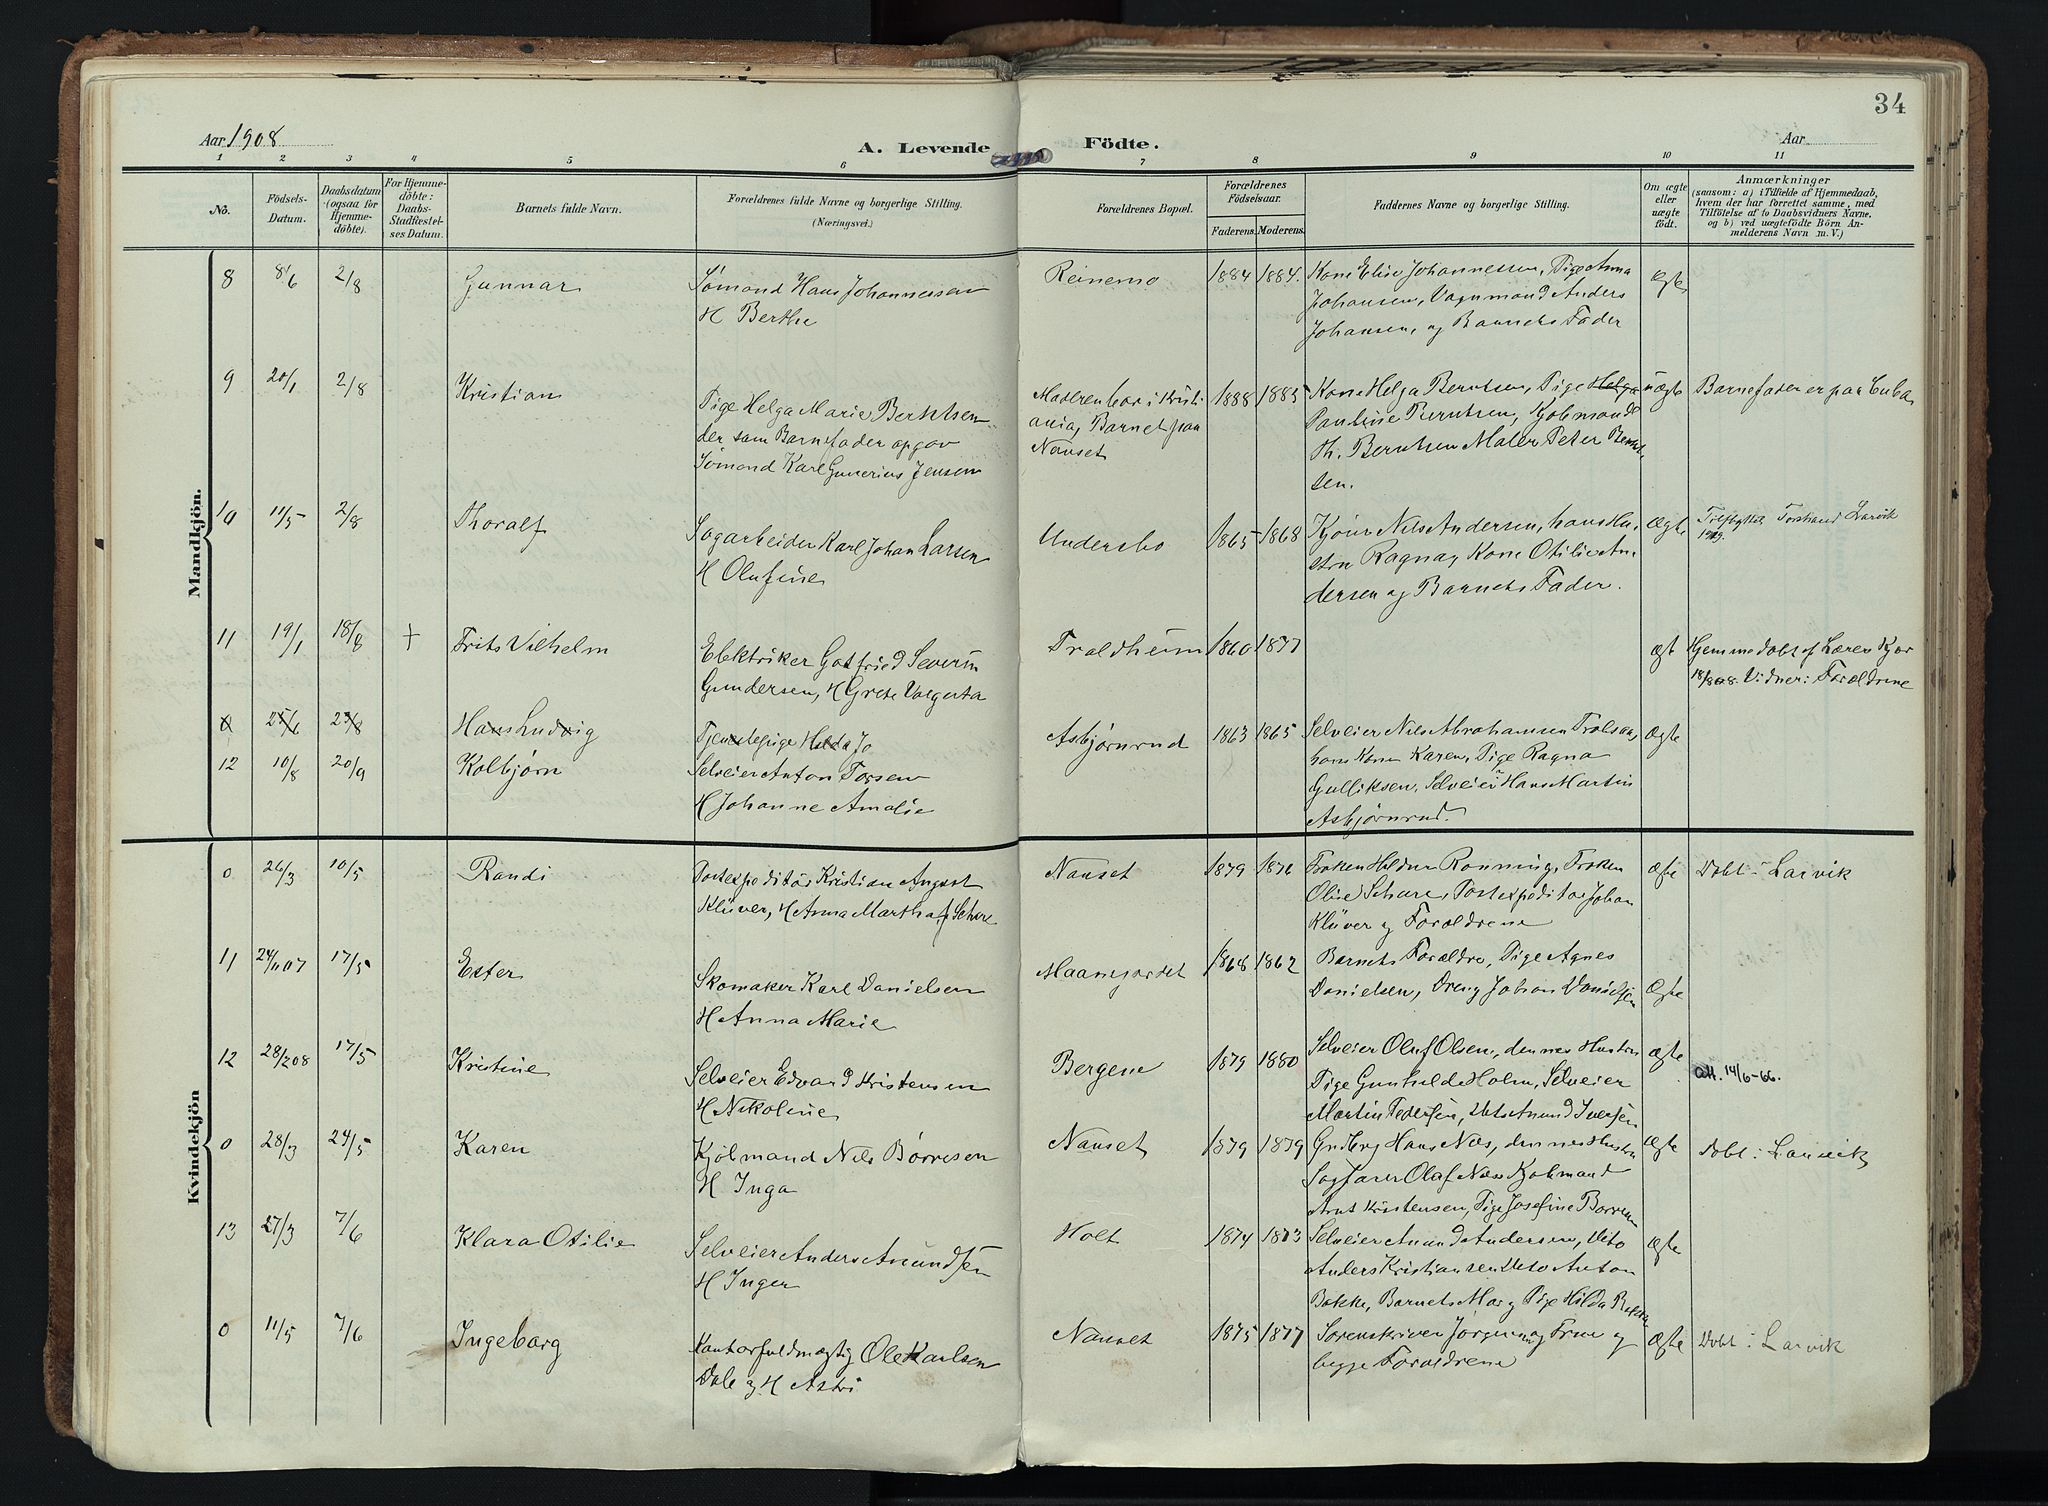 34
Aar 1908
A. Levende
Födte.
Aar
1 2 3 4 5 6 7 8 9 10 11
No.
Födsels-
Datum.
Daabsdatum
(ogsaa for
Hjemme-
döbte).
For Hjemme-
döbte:
Daabs-
Stadfæstel-
ses Datum.
Barnets fulde Navn.
Forældrenes fulde Navne og borgerlige Stilling.
(Næringsvei.)
Forældrenes Bopæl.
Forældrenes
Födselsaar.
Faderens. Moderens.
Faddernes Navne og borgerlige Stilling.
Om ægte
eller
uægte
födt.
Anmærkninger
(saasom: a) i Tilfælde af Hjemmedaab,
hvem der har forrettet samme, med
Tilföielse af to Daabsvidners Navne,
og b) ved uægtefödte Börn An-
melderens Navn m. V.)
Mandkjön.
8 8/6 2/8 Gunnar
Sømand Hans Johannessen
H Berthe
Reinemo 1884 1884.
Kone Elise Johannessen, Pige Anna
Johansen, Vognmand Anders
Johansen, og Barnets Fader
ægte
9 20/1 2/8 Kristian
Pige Helga Marie Berntsen
der som Barnefader opgav
Sømand Karl Gunerius Jensen
Moderen bor i Kristi
ania, Barnet paa
Nanset
1888 1885
Kone Helga Berntsen, Pige Helga
Pauline Berntsen, Kjølmand
Th. Berntsen Maler Peter Bernt-
sen.
uægte
Barnefader er paa Cuba
10 11/5 2/8 Thoralf
Sagarbeider Karl Johan Larsen
H Olufine
Undersbo 1865 1868
Nils Andersen, hans Hu-
stru Ragna, Kone Otilie An-
dersen og Barnets Fader.
ægte
Torstrand Larvik
11 19/1 18/8 + Frits Vilhelm
Elektriker Gotfried Severin
Gundersen, H Grete Valgerta
Traldheim 1860 1877
ægt
Hjemmedøbt af Lærer
18/8 08. Vidner: Forældrene
0 25/6 23/8 Hans Ludvig
Tjenestepige Hilda Jo
12 10/8 20/9 Kolbjørn
Selveier Anton Torsen
H Johanne Amalie
Asbjørnrud 1863 1865
Selveier Nils Abrahamsen
hans Kone Karen, Pige Ragna
Gulliksen, Selveier Hans Martin
Asbjørnrud.
ægte
Kvindekjön
0 26/3 10/5 Randi
Postexpeditør Kristian August
Klüver, H Anna Martha f. Schære
Nanset 1879 1876
Frøken Rønning, Frøken
Olise Schære, Postexpeditør Johan
Klüver og Forældrene
ægte
Døbt i Larvik
11 24/11 07 17/5 Ester
Skomaker Karl Danielsen
H Anna Marie
Maanejordet 1868 1862
Barnets Forældre, Pige Agnes
Danielsen, Dreng Johan Danielsen
Ægte
12 28/2 08 17/5 Kristine
Selveier Edvard Kristensen
H Nikoline
Bergene 1879 1880
Selveier Oluf Olsen, dennes Hustru
Pige Gunhilde Holm, Selveier
Martin Pedersen, Amund Iversen
ægte
att. 14/6-66.
0 28/3 24/5 Karen
Kjølmand Nils Børresen
H Inga
Nanset 1879 1879
Grdbrg Hans Næs, dennes Hustru
Sagfører Olaf Næs Kjølmand
Arnt Kristensen, Pige Josefine Børresen
ægte
Døbt i Larvik
13 27/3 7/6 Klara Otilie
Selveier Anders Amundsen
H Inger
Holt 1874 1873
Selveier Amund Andersen, dito
Anders Kristiansen dito Anton
Bakke, Barnets Mor og Pige Hilda Bakke
Ægte
0 11/5 7/6 Ingeborg
Kontorfuldmægtig Ole Karlsen
Dale og H Astri
Nanset 1875 1877
Sorenskriver Jørgensen, Frue og
begge Forældrene
Ægte
Døbt i Larvik